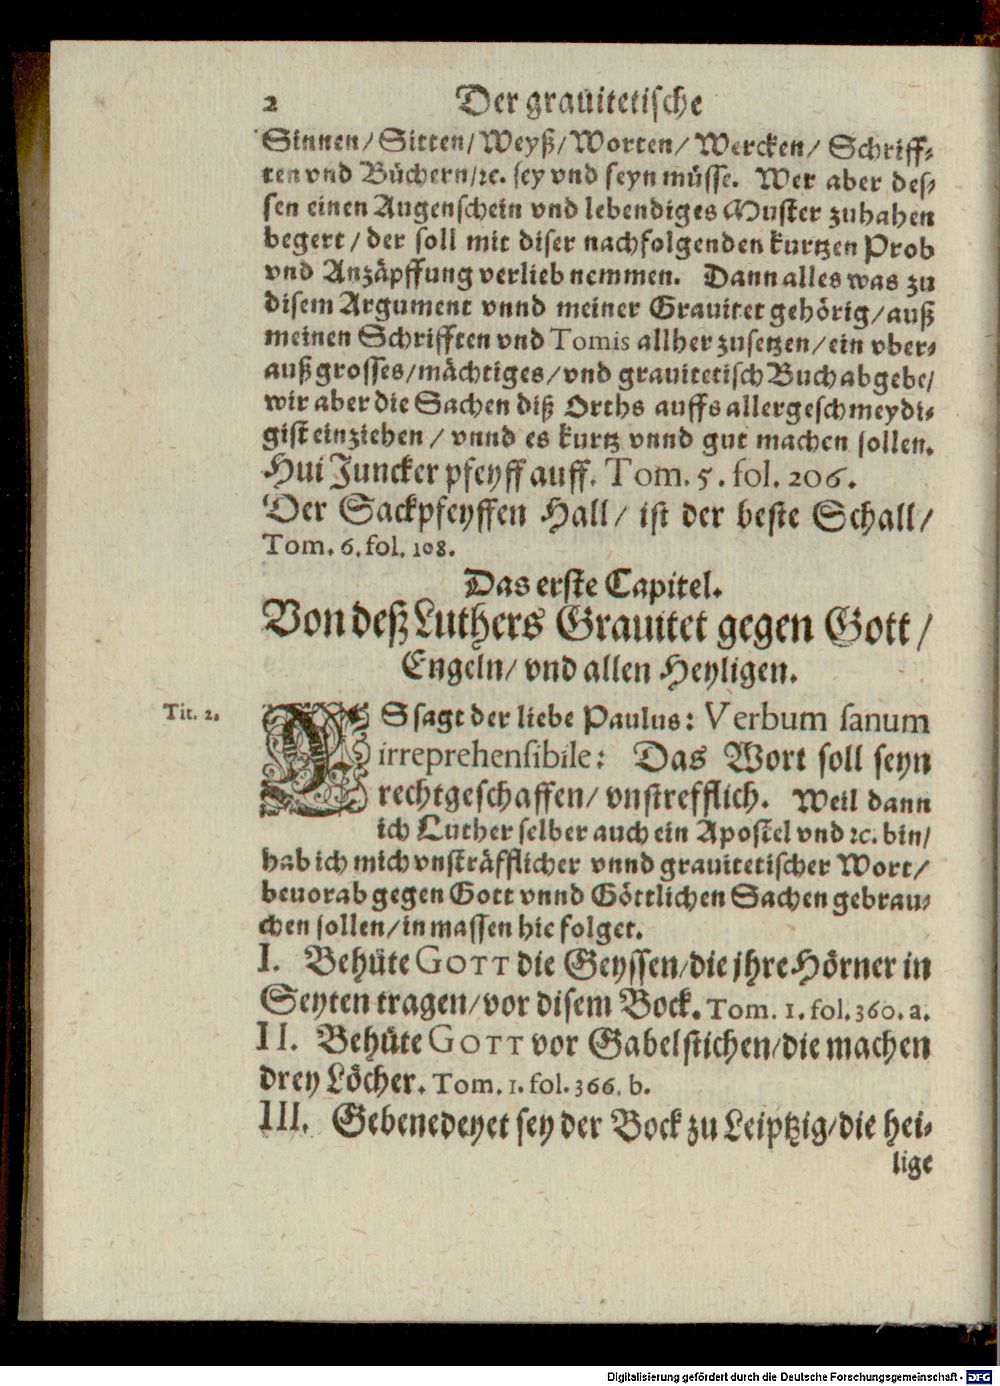 2 Der grauitetische
Sinnen/ Sitten/ Weyß/ Worten/ Wercken/ Schriff-
ten vnd Büchern/ ꝛc. sey vnd seyn müsse. Wer aber des-
sen einen Augenschein vnd lebendiges Muster zuhahen
begert / der soll mit diser nachfolgenden kurtzen Prob
vnd Anzäpffung verlieb nemmen. Dann alles was zu
disem Argument vnnd meiner Grauitet gehörig/ auß
meinen Schrifften vnd Tomis allher zusetzen/ ein vber-
auß grosses/ mächtiges/ vnd grauitetisch Buch abgebe/
wir aber die Sachen diß Orths auffs allergeschmeydi-
gist einziehen / vnnd es kurtz vnnd gut machen sollen.
Hui Juncker pfeyff auff. Tom. 5. fol. 206.
Der Sackpfeyffen Hall/ ist der beste Schall/
Tom. 6. fol. 108.
Das erste Capitel.
Von deß Luthers Grauitet gegen Gott /
Engeln/ vnd allen Heyligen.
Tit. 2.
ES sagt der liebe Paulus: Verbum sanum
irreprehensibile: Das Wort soll seyn
rechtgeschaffen/ vnstrefflich. Weil dann
ich Luther selber auch ein Apostel vnd ꝛc. bin/
hab ich mich vnsträfflicher vnnd grauitetischer Wort/
beuorab gegen Gott vnnd Göttlichen Sachen gebrau-
chen sollen/ in massen hie folget.
I. Behüte GOTT die Geyssen/ die jhre Hörner in
Seyten tragen/ vor disem Bock. Tom. 1. fol. 360. a.
II. Behüte GOTT vor Gabelstichen/ die machen
drey Löcher. Tom. 1. fol. 366. b.
III. Gebenedeyet sey der Bock zu Leiptzig/ die hei-
lige
Digitalisierung gefördert durch die Deutsche Forschungsgemeinschaft - DFG